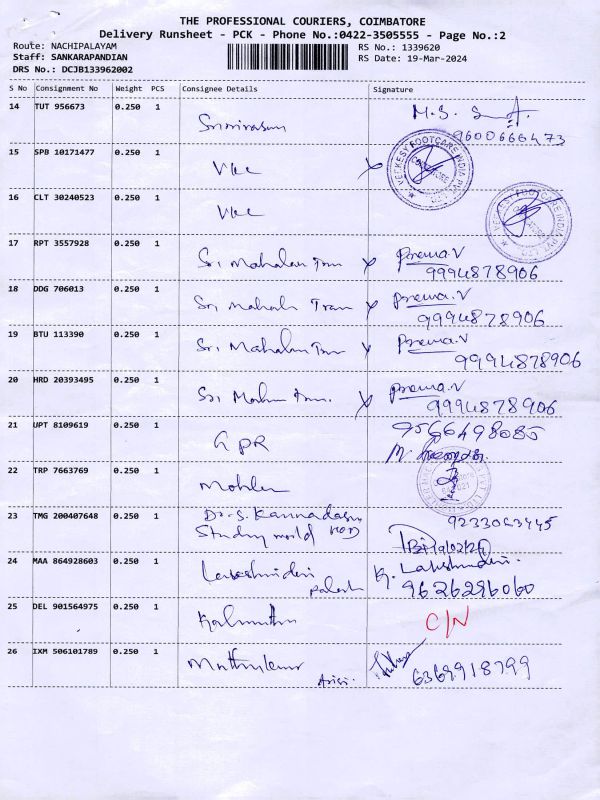 THE PROFESSIONAL COURIERS, COIMBATORE
Delivery Runsheet - PCK - Phone No.:0422-3505555 - Page No.:2
Route: NACHIPALAYAM RS No.: 1339620
Staff: SANKARAPANDIAN RS Date: 19-Mar-2024
DRS No.: DCJB133962002
S No Consignment No Weight PCS Consignee Details Signature
14 TUT 956673 0.250 1 M.S.
Srinivasan 9600666473
15 SPB 10171477 0.250 1
VKC VEEKESY FOOTCARE INDIA PVT LTD
16 CLT 30240523 0.250 1
VKC VEEKESY FOOTCARE INDIA PVT LTD
17 RPT 3557928 0.250 1 Prema.V
Sri 9994878906
18 DDG 706013 0.250 1 Prema.V
Sri 9994878906
19 BTU 113390 0.250 1 Prema.V
Sri 9994878906
20 HRD 20393495 0.250 1 Prema.V
Sri 9994878906
21 UPT 8109619 0.250 1 9566498085
GPR
22 TRP 7663769 0.250 1
23 TMG 200407648 0.250 1 Dr.S. Kannadasan 9233063445
Study world HOD
24 MAA 864928603 0.250 1 K. Lakshmidevi
Lakshmidevi 9626296060
25 DEL 901564975 0.250 1 C/N
26 IXM 506101789 0.250 1
Muthukumar 6369918799